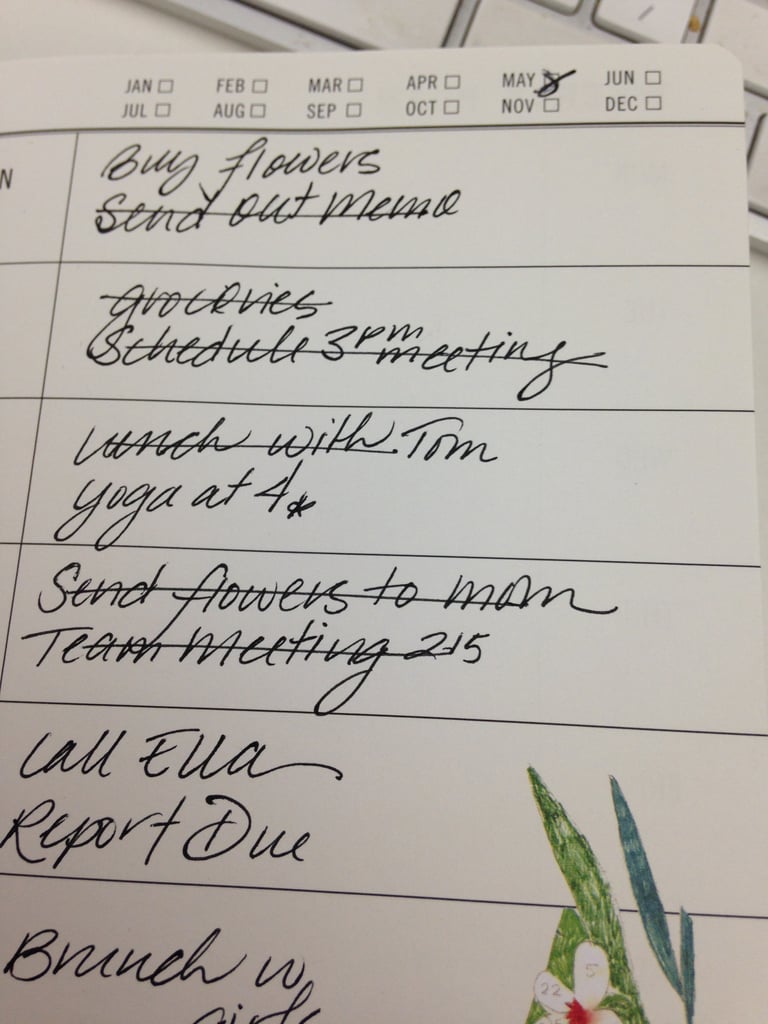 JAN FEB MAR APR MAY JUN
JUL AUG SEP OCT NOV DEC
N
Buy flowers
Send out memo
groceries
Schedule 3pm meeting
Lunch with Tom
yoga at 4*
Send flowers to mom
Team Meeting 215
Call Ella
Report Due
Brunch w
girls
5
22